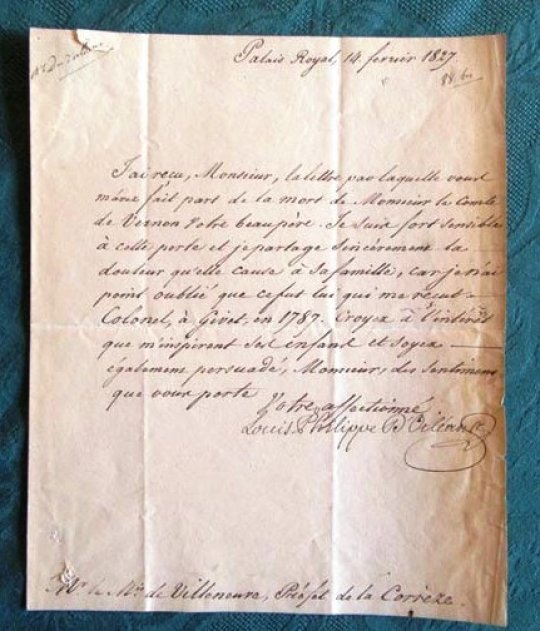 Palais Royal, 14 fevrier 1827.
J'ai reçu, Monsieur, la lettre par laquelle vous
m'avez fait part de la mort de Monsieur le Comte
de Vernon Votre beaupère. Je suis fort sensible
à cette perte et je partage sincèrement la
douleur qu'elle cause à sa famille, car je n'ai
point oublié que ce fut lui qui me reçut
Colonel, à Givet, en 1787. Croyez à l'intérêt
que m'inspirent ses enfans et soyez
également persuadé, Monsieur, des sentimens
que vous porte
Votre affectionné
Louis Philippe D'Orléans
Mr. le Mis. de Villeneuve, Préfet de la Corrèze.